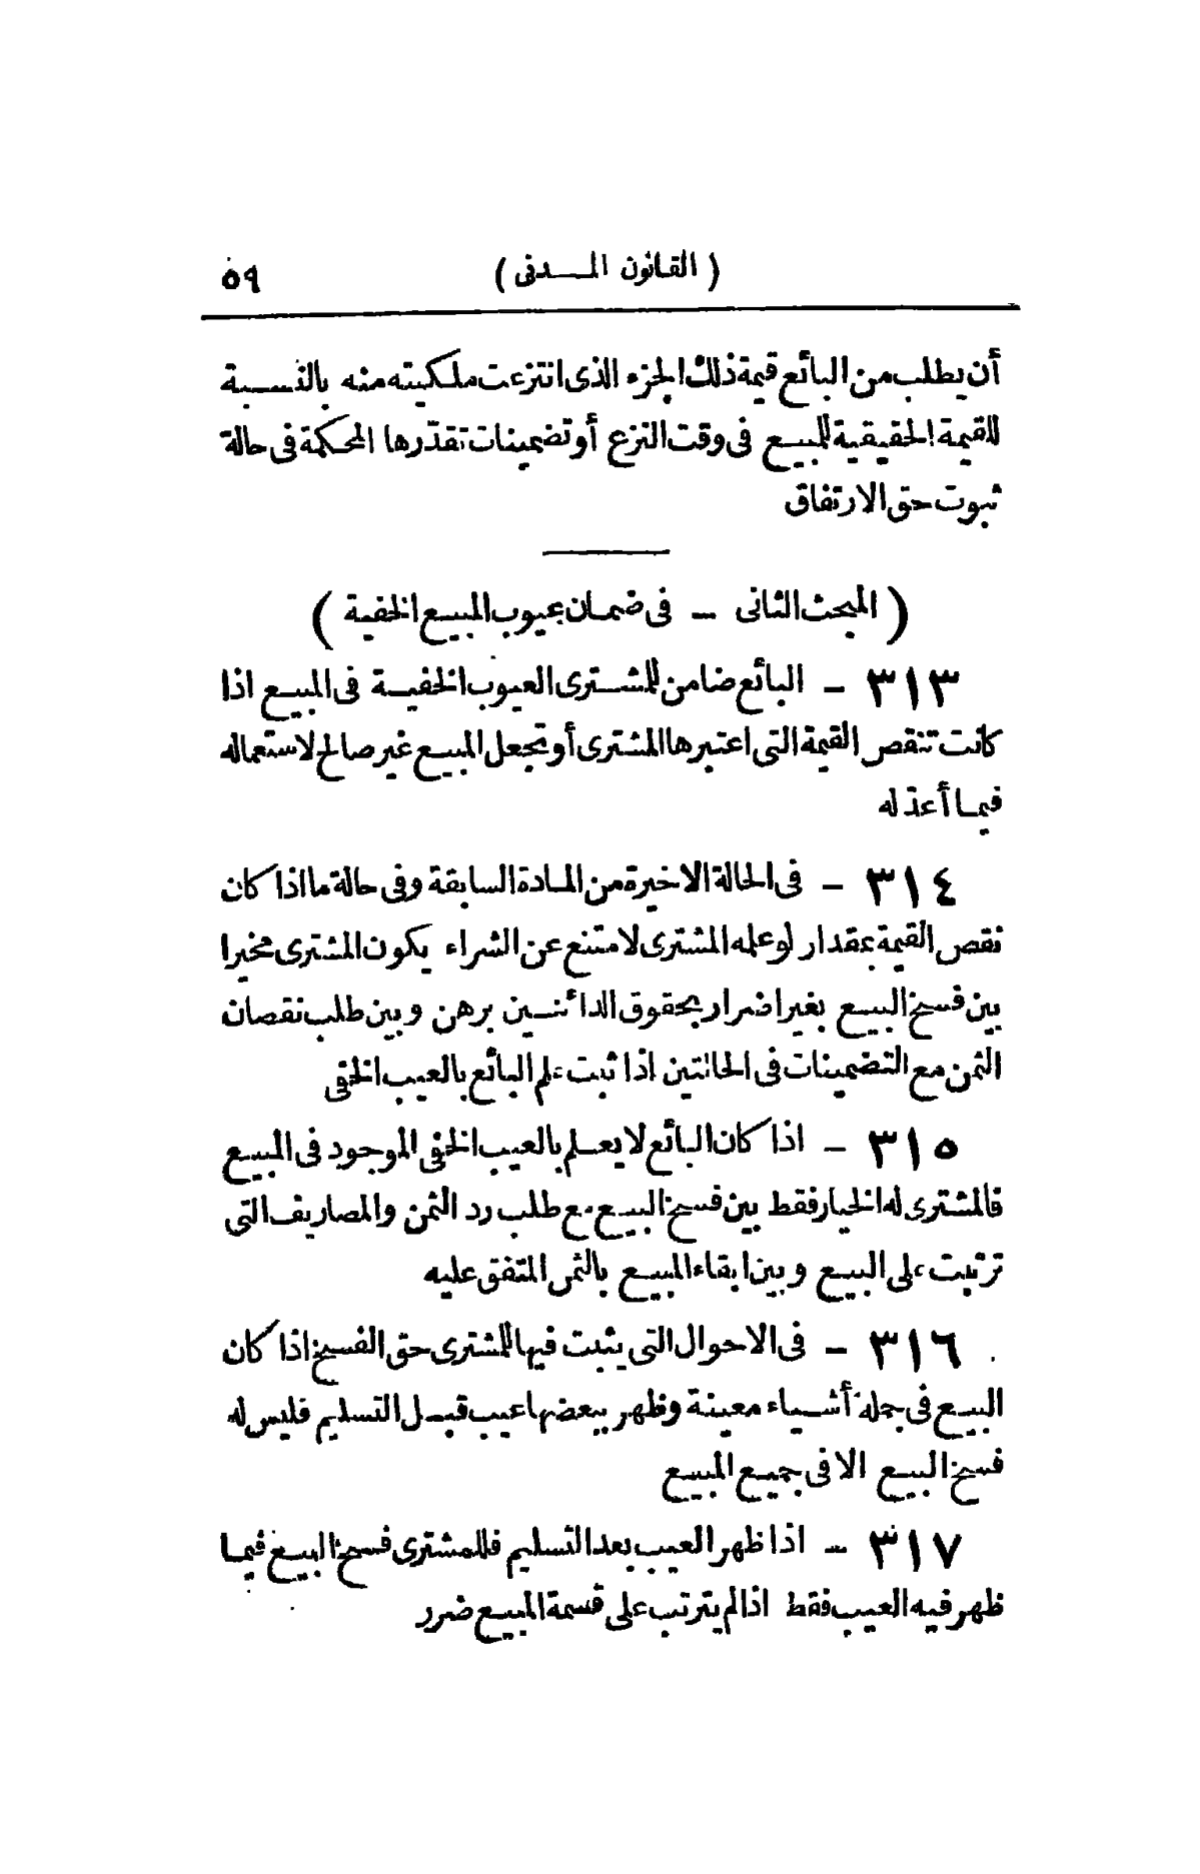 ( القانون المـــدنى ) ٥٩
أن يطلب من البائع قيمة ذلك الجزء الذى انتزعت ملكيته منه بالنســـبة
للقيمة الحقيقية للمبيــع فى وقت النزع أو تضمينات تقدّرها المحكمة فى حالة
ثبوت حق الارتفاق
( المبحث الثانى — فى ضمـان عيوب المبيـع الخفية )
٣١٣ — البائع ضامن للمشــترى العيوب الخفيــة فى المبيـع اذا
كانت تنقص القيمة التى اعتبرها المشترى أو تجعل المبيـع غير صالح لاستعماله
فيمـا أعدّ له
٣١٤ — فى الحالة الاخيرة من المـادة السابقة وفى حالة ما اذا كان
نقص القيمة بمقدار لو علمه المشترى لامتنع عن الشراء يكون المشترى مخيرا
بين فسخ البيـع بغير اضرار بحقوق الدائنــين برهن وبين طلب نقصان
الثمن مع التضمينات فى الحالتين اذا ثبت علم البائع بالعيب الخفى
٣١٥ — اذا كان البائع لا يعــلم بالعيب الخفى الموجود فى المبيـع
فالمشترى له الخيار فقط بين فسخ البيـع مع طلب رد الثمن والمصاريف التى
ترتبت على البيـع وبين ابقاء المبيـع بالثمن المتفق عليه
٣١٦ — فى الاحوال التى يثبت فيها للمشترى حق الفسخ اذا كان
البيـع فى جملة أشــياء معينة وظهر ببعضها عيب قبــل التسليم فليس له
فسخ البيـع الا فى جميـع المبيـع
٣١٧ — اذا ظهر العيب بعد التسليم فللمشترى فسخ البيـع فيمـا
ظهر فيه العيب فقط اذا لم يترتب على قسمة المبيـع ضرر